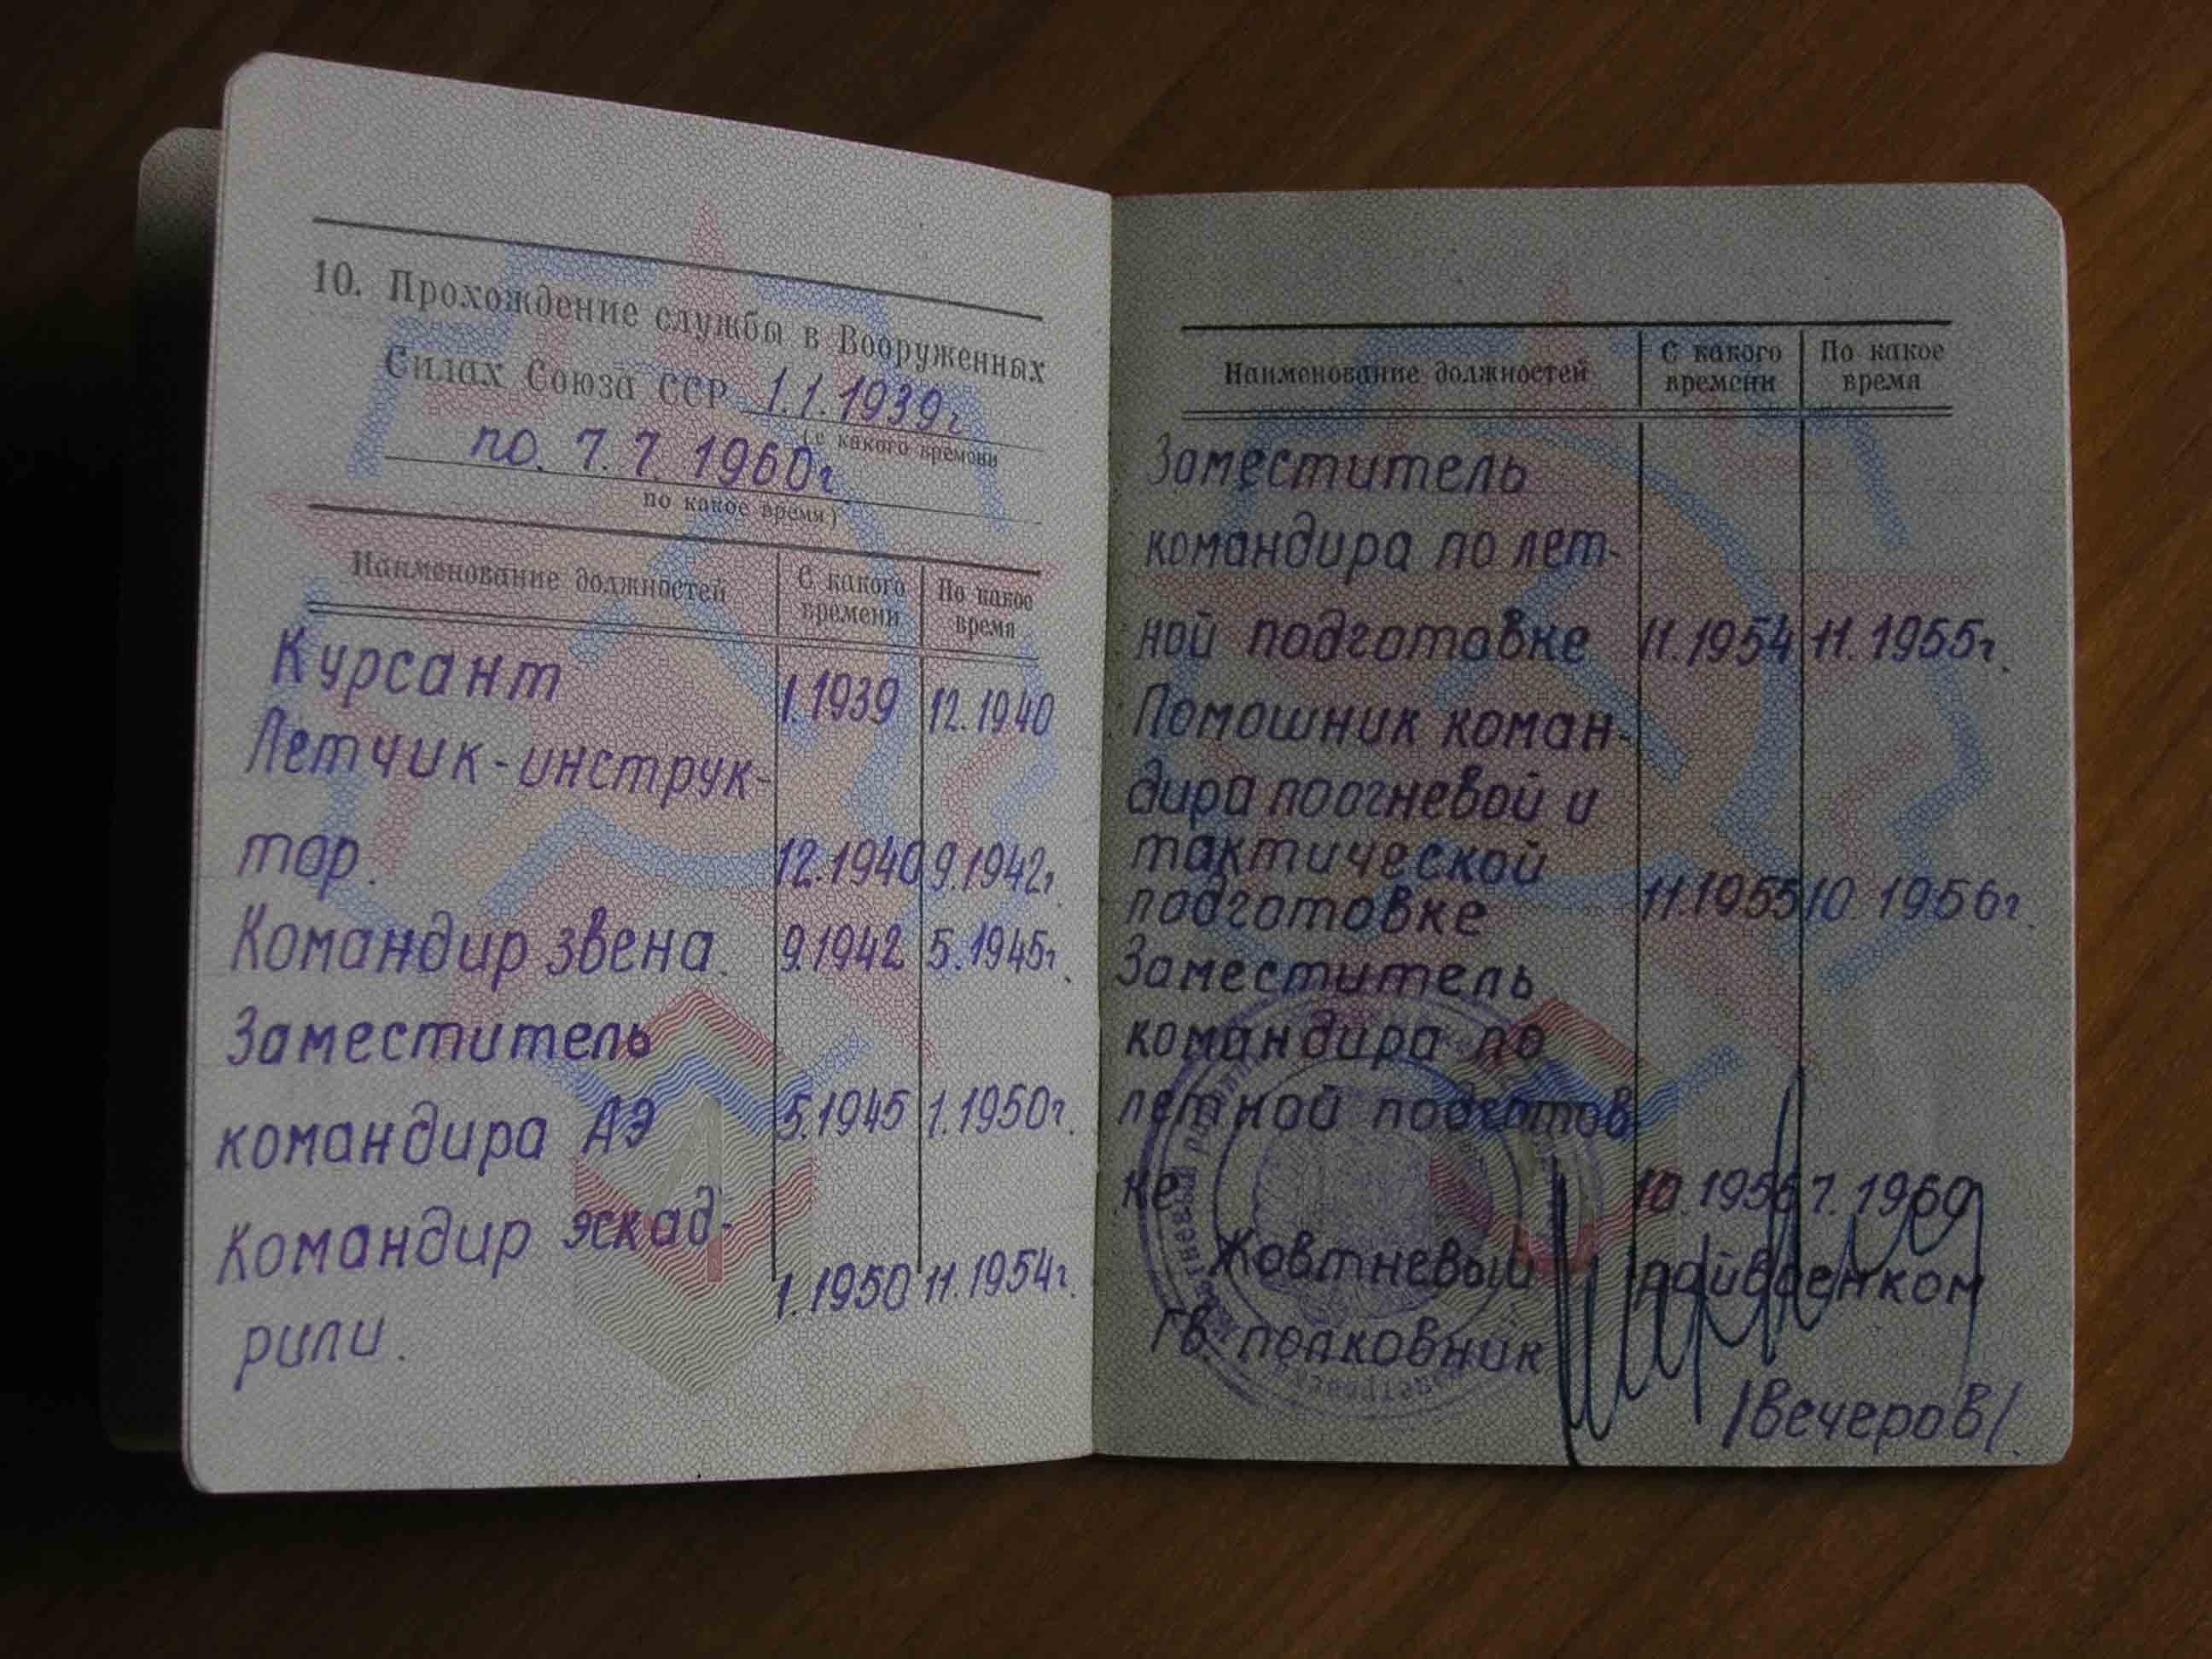 10. Прохождение службы в Вооруженных
Силах Союза ССР 1.1.1939г
(с какого времени
по. 7.7.1960г
по какое время)
Наименование должностей С какого времени По какое время
Курсант 1.1939 12.1940
Летчик-инструк-
тор. 12.1940 9.1942г.
Командир звена. 9.1942 5.1945г.
Заместитель
командира АЭ 5.1945 1.1950г.
Командир эскад-
рили. 1.1950 11.1954г.
Наименование должностей С какого времени По какое время
Заместитель
командира по лет-
ной подготовке 11.1954 11.1955г.
Помошник коман-
дира поогневой и
тактической
подготовке 11.1955 10.1956г.
Заместитель
командира по
летной подготов
ке 10.1956 7.1960
Жовтневый райвоенком
гв. полковник
/Вечеров/.